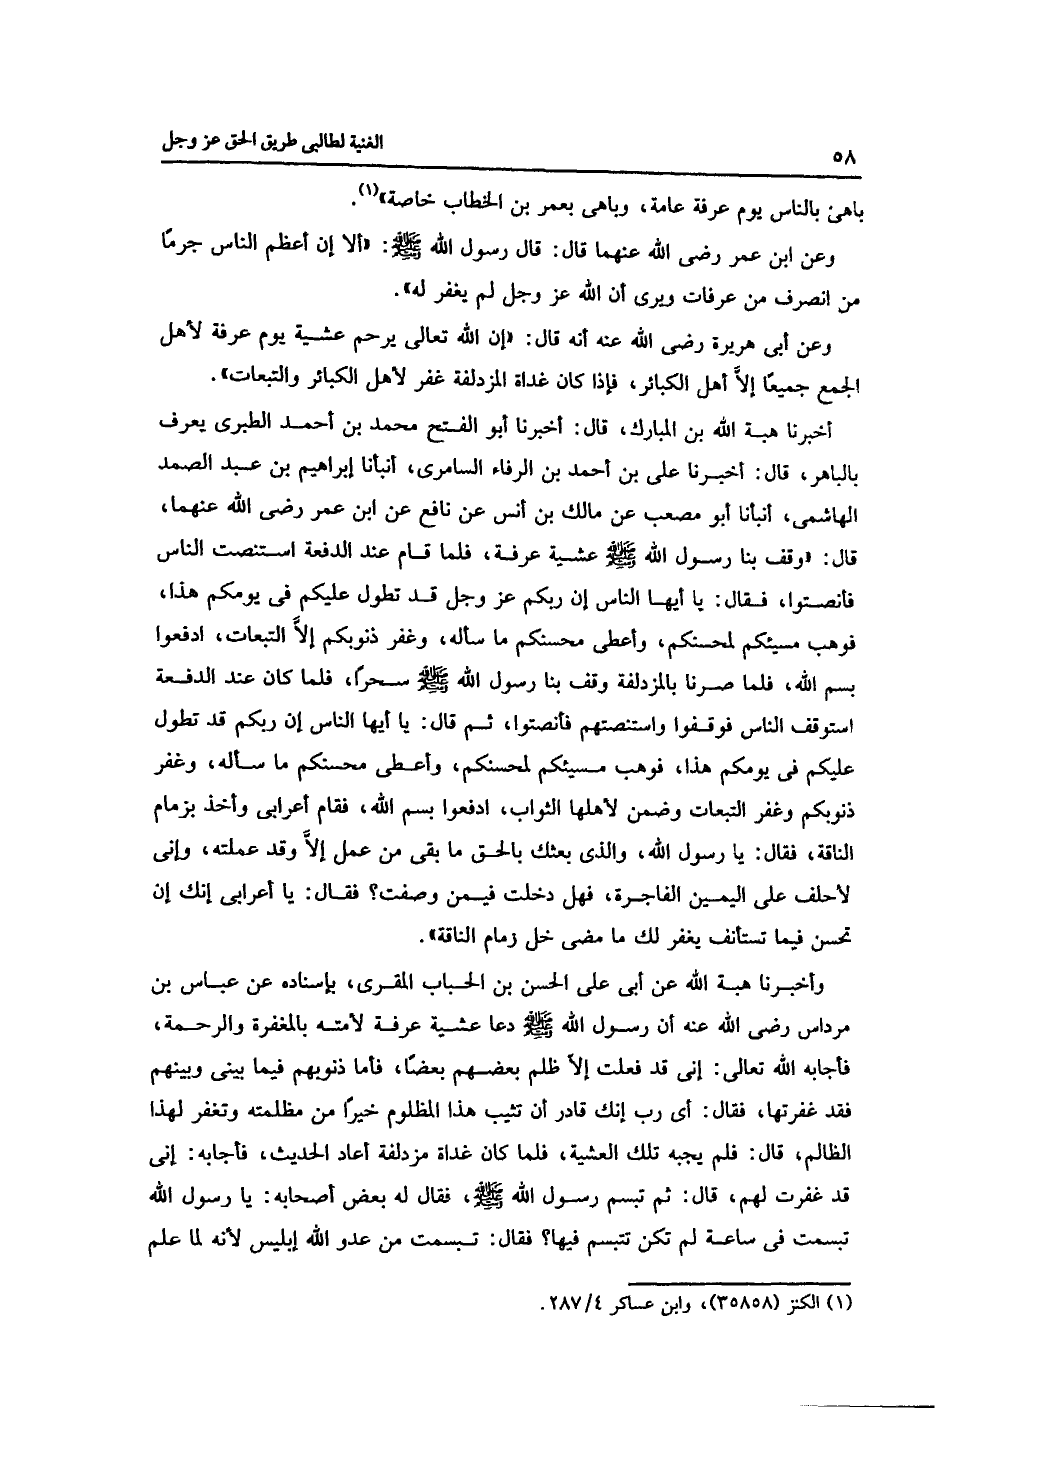 ٥٨
الغنية لطالبى طريق الحق عز وجل
باهئ بالناس يوم عرفة عامة، وباهى بعمر بن الخطاب خاصة»(١).
وعن ابن عمر رضى الله عنهما قال: قال رسول الله ﷺ: «ألا إن أعظم الناس جرمًا
من انصرف من عرفات ويرى أن الله عز وجل لم يغفر له».
وعن أبى هريرة رضى الله عنه أنه قال: «إن الله تعالى يرحم عشية يوم عرفة لأهل
الجمع جميعًا إلاَّ أهل الكبائر، فإذا كان غداة المزدلفة غفر لأهل الكبائر والتبعات».
أخبرنا هبة الله بن المبارك، قال: أخبرنا أبو الفتح محمد بن أحمد الطبرى يعرف
بالباهر، قال: أخبرنا على بن أحمد بن الرفاء السامرى، أنبأنا إبراهيم بن عبد الصمد
الهاشمى، أنبأنا أبو مصعب عن مالك بن أنس عن نافع عن ابن عمر رضى الله عنهما،
قال: «وقف بنا رسول الله ﷺ عشية عرفة، فلما قام عند الدفعة استنصت الناس
فأنصتوا، فقال: يا أيها الناس إن ربكم عز وجل قد تطول عليكم فى يومكم هذا،
فوهب مسيئكم لمحسنكم، وأعطى محسنكم ما سأله، وغفر ذنوبكم إلاَّ التبعات، ادفعوا
بسم الله، فلما صرنا بالمزدلفة وقف بنا رسول الله ﷺ سحراً، فلما كان عند الدفعة
استوقف الناس فوقفوا واستنصتهم فأنصتوا، ثم قال: يا أيها الناس إن ربكم قد تطول
عليكم فى يومكم هذا، فوهب مسيئكم لمحسنكم، وأعطى محسنكم ما سأله، وغفر
ذنوبكم وغفر التبعات وضمن لأهلها الثواب، ادفعوا بسم الله، فقام أعرابى وأخذ بزمام
الناقة، فقال: يا رسول الله، والذى بعثك بالحق ما بقى من عمل إلاَّ وقد عملته، وإنى
لأحلف على اليمين الفاجرة، فهل دخلت فيمن وصفت؟ فقال: يا أعرابى إنك إن
تحسن فيما تستأنف يغفر لك ما مضى خل زمام الناقة».
وأخبرنا هبة الله عن أبى على الحسن بن الحباب المقرى، بإسناده عن عباس بن
مرداس رضى الله عنه أن رسول الله ﷺ دعا عشية عرفة لأمته بالمغفرة والرحمة،
فأجابه الله تعالى: إنى قد فعلت إلاَّ ظلم بعضهم بعضًا، فأما ذنوبهم فيما بينى وبينهم
فقد غفرتها، فقال: أى رب إنك قادر أن تثيب هذا المظلوم خيرًا من مظلمته وتغفر لهذا
الظالم، قال: فلم يجبه تلك العشية، فلما كان غداة مزدلفة أعاد الحديث، فأجابه: إنى
قد غفرت لهم، قال: ثم تبسم رسول الله ﷺ، فقال له بعض أصحابه: يا رسول الله
تبسمت فى ساعة لم تكن تتبسم فيها؟ فقال: تبسمت من عدو الله إبليس لأنه لما علم
(١) الكنز (٣٥٨٥٨)، وابن عساكر ٢٨٧/٤.